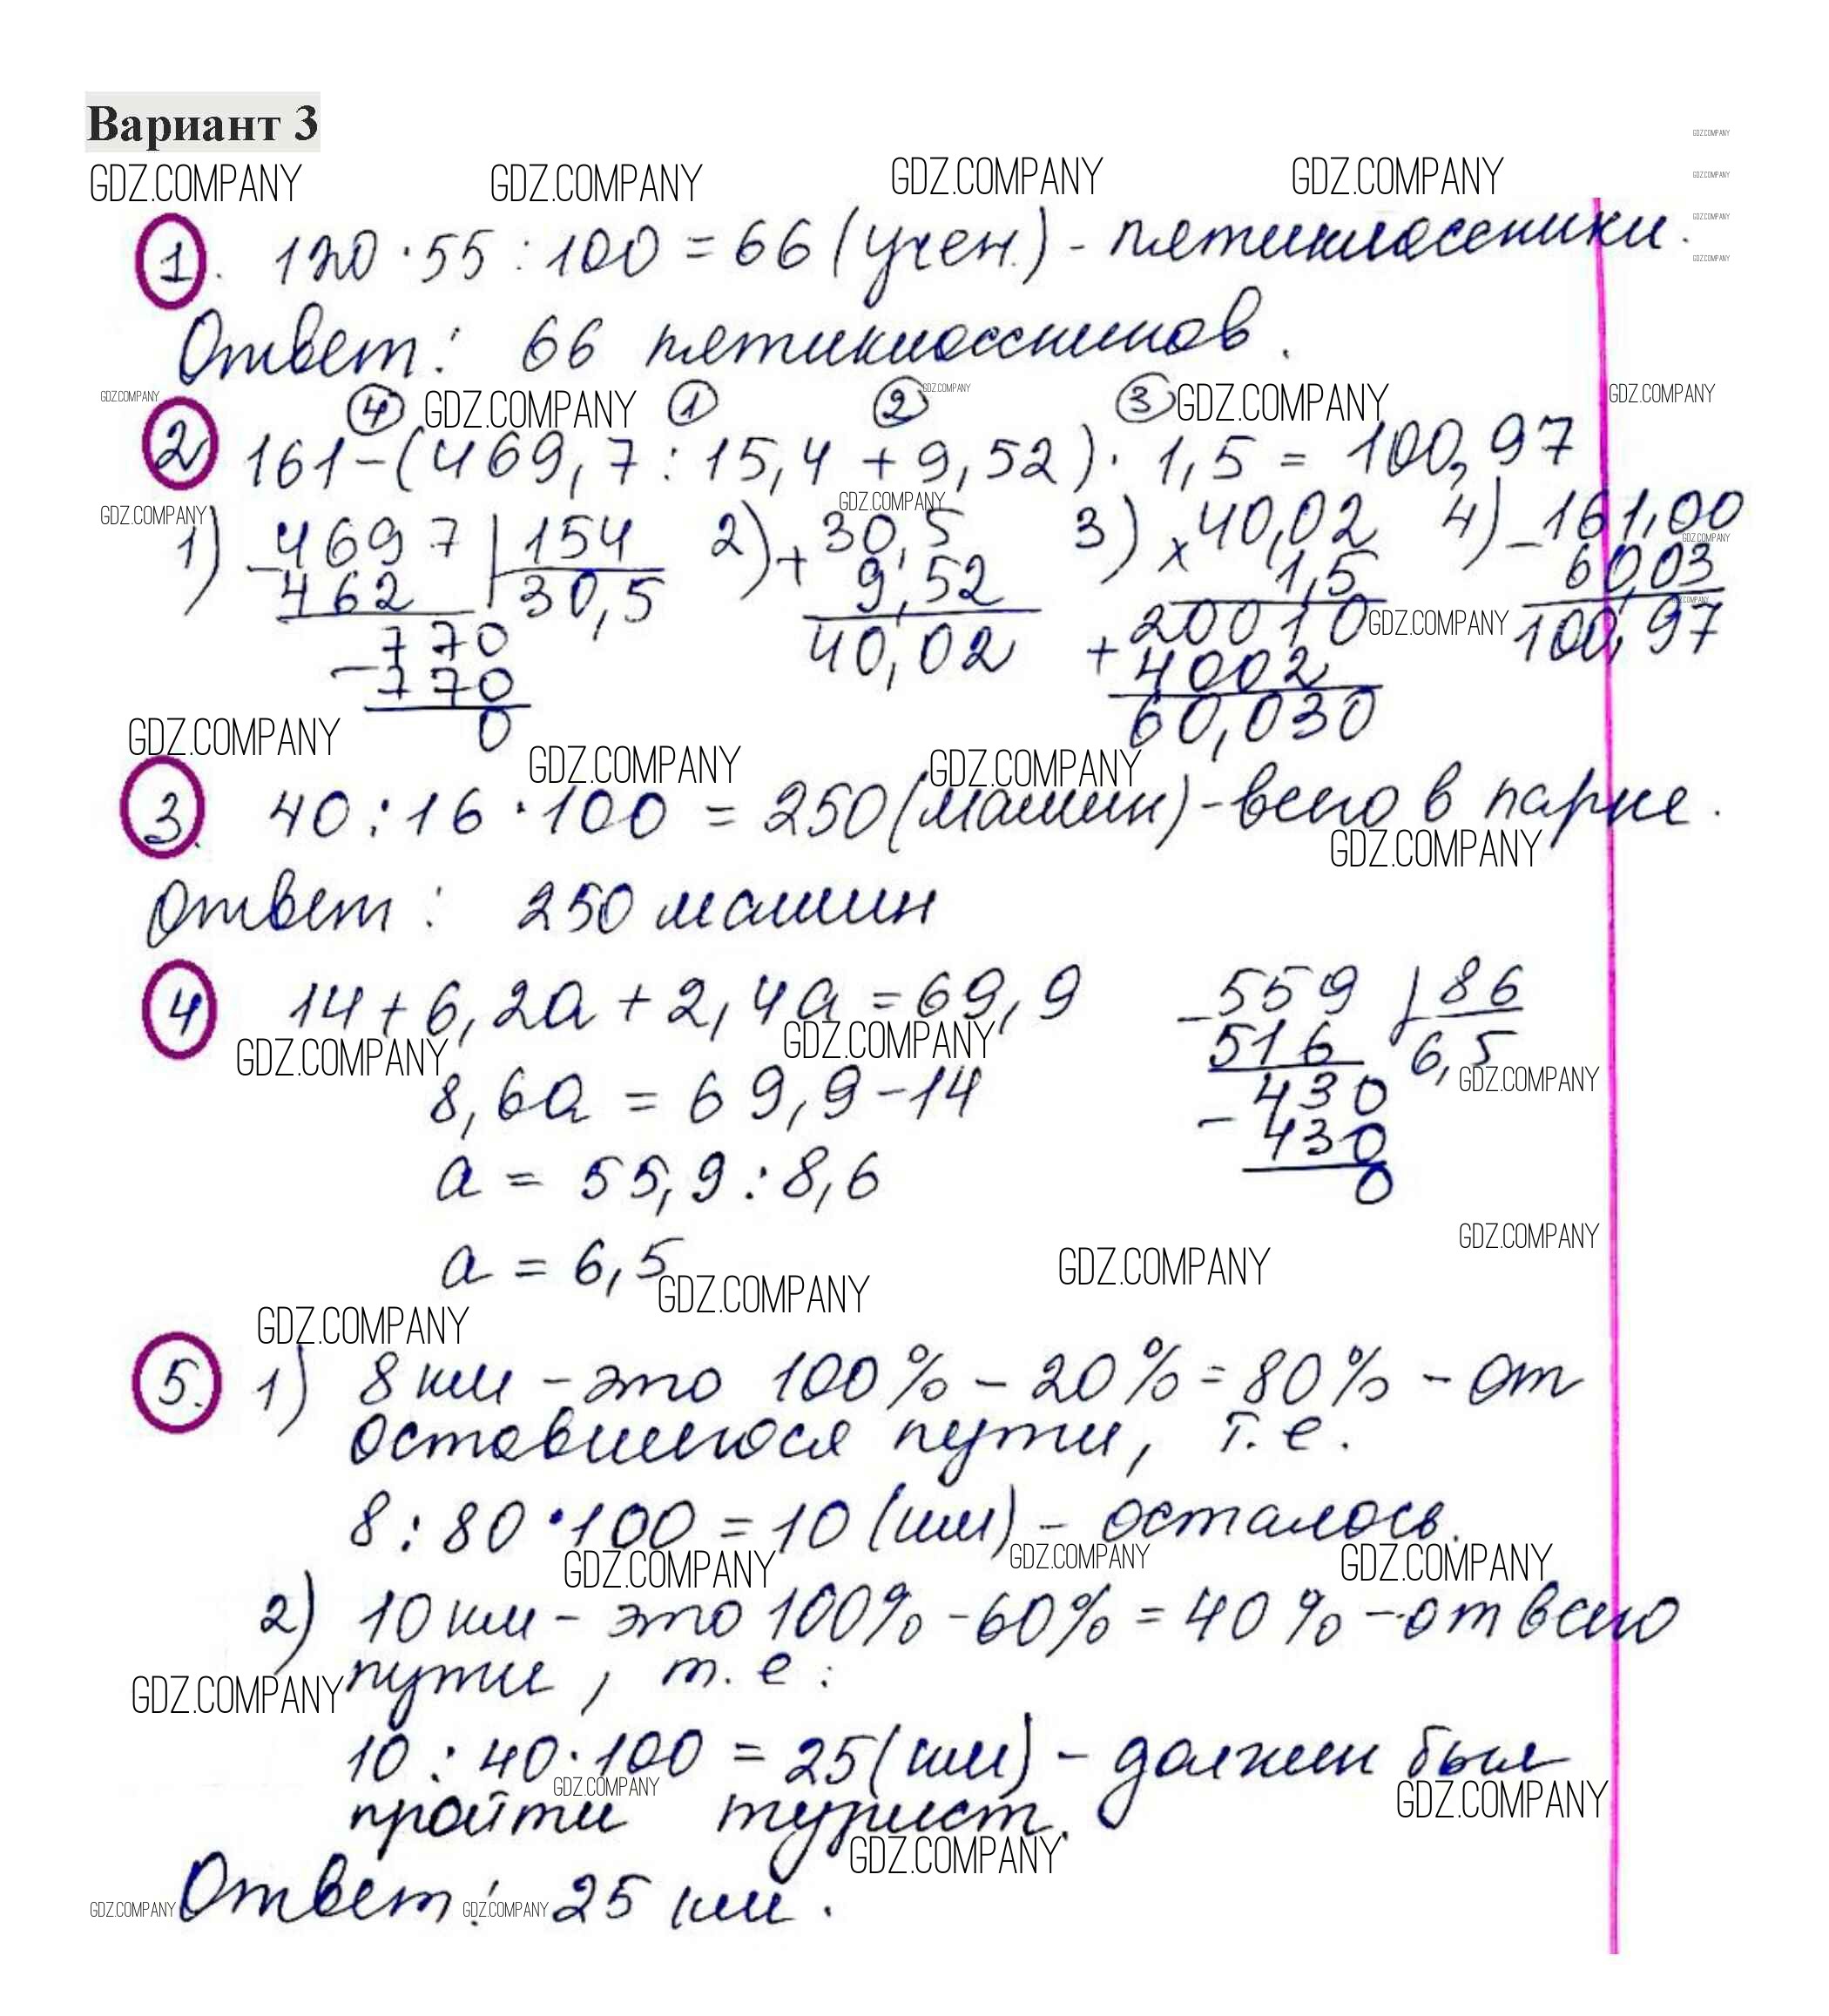 Вариант 3
GDZ.COMPANY GDZ.COMPANY GDZ.COMPANY GDZ.COMPANY
1. 120 · 55 : 100 = 66 (учен.) - пятиклассники.
Ответ: 66 пятиклассников.
4 1 2 3
2 161 - (469,7 : 15,4 + 9,52) · 1,5 = 100,97
1) - 4697 | 154 2) + 30,5 3) x 40,02 4) - 161,00
462 30,5 9,52 1,5 60,03
770 40,02 + 20010 100,97
- 770 4002
0 60,030
GDZ.COMPANY GDZ.COMPANY GDZ.COMPANY
3. 40 : 16 · 100 = 250 (машин) - всего в парке.
GDZ.COMPANY
Ответ: 250 машин
4 14 + 6,2а + 2,4а = 69,9 - 559 | 86
516 6,5
GDZ.COMPANY GDZ.COMPANY GDZ.COMPANY
8,6а = 69,9 - 14 430
- 430
а = 55,9 : 8,6 0
а = 6,5
GDZ.COMPANY GDZ.COMPANY GDZ.COMPANY
GDZ.COMPANY
5. 1) 8 км - это 100% - 20% = 80% - от
оставшегося пути, т.е.
8 : 80 · 100 = 10 (км) - осталось.
GDZ.COMPANY GDZ.COMPANY GDZ.COMPANY
2) 10 км - это 100% - 60% = 40% - от всего
GDZ.COMPANY пути, т.е.
10 : 40 · 100 = 25 (км) - должен был
GDZ.COMPANY GDZ.COMPANY
пройти турист.
GDZ.COMPANY
GDZ.COMPANY Ответ: GDZ.COMPANY 25 км.